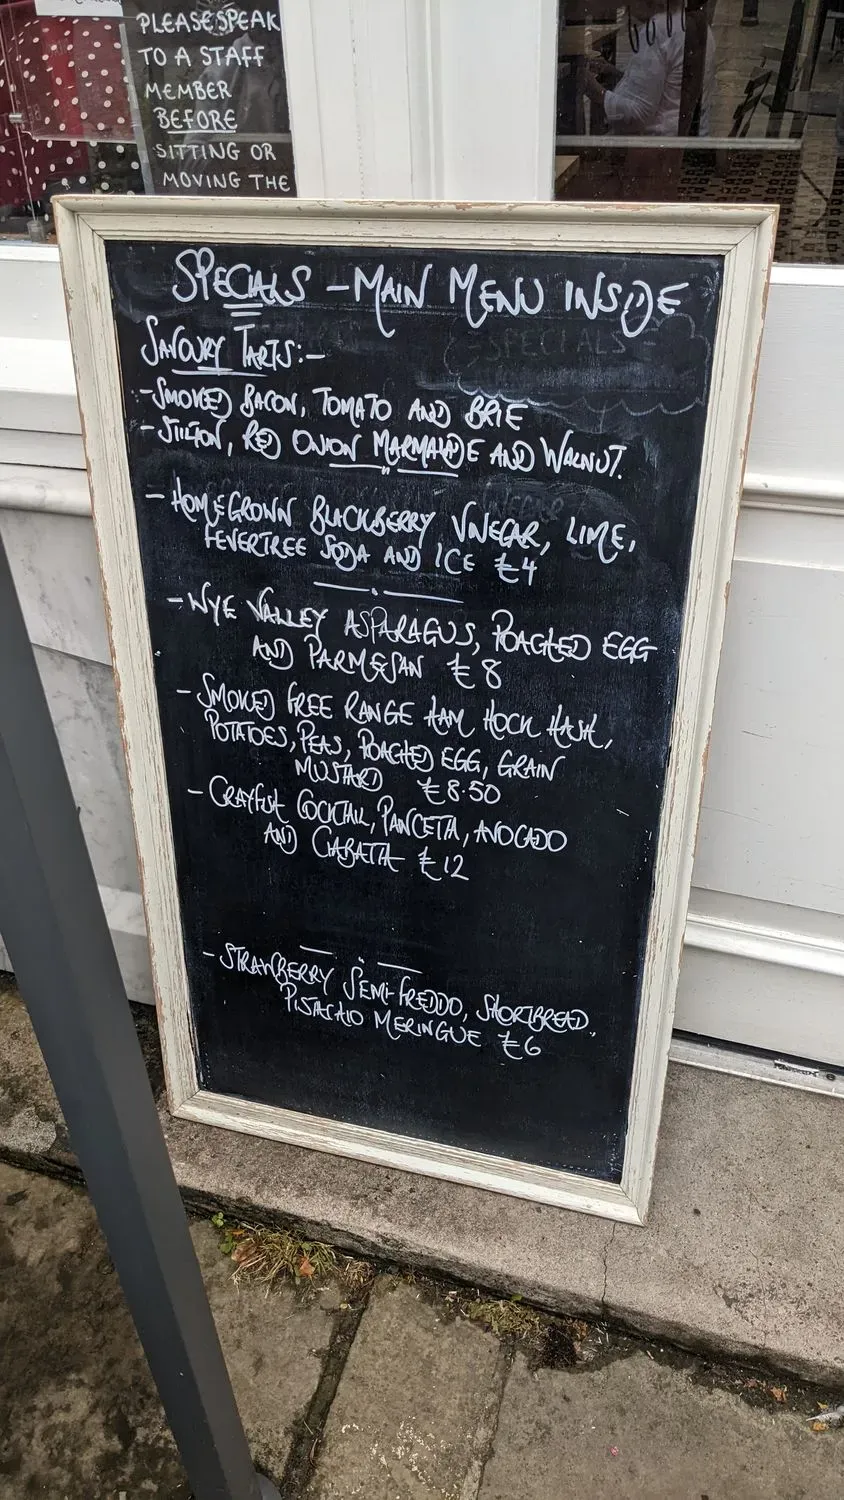 PLEASE SPEAK
TO A STAFF
MEMBER
BEFORE
SITTING OR
MOVING THE
SPECIALS - MAIN MENU INSIDE
SAVOURY TARTS:-
- SMOKED BACON, TOMATO AND BRIE
- STILTON, RED ONION MARMALADE AND WALNUT.
- HOMEGROWN BLACKBERRY VINEGAR, LIME,
FEVERTREE SODA AND ICE £4
- WYE VALLEY ASPARAGUS, POACHED EGG
AND PARMESAN £8
- SMOKED FREE RANGE HAM HOCK HASH,
POTATOES, PEAS, POACHED EGG, GRAIN
MUSTARD £8.50
- CRAYFISH COCKTAIL, PANCETTA, AVOCADO
AND CIABATTA £12
- STRAWBERRY SEMI-FREDDO, SHORTBREAD,
PISTACHIO MERINGUE £6